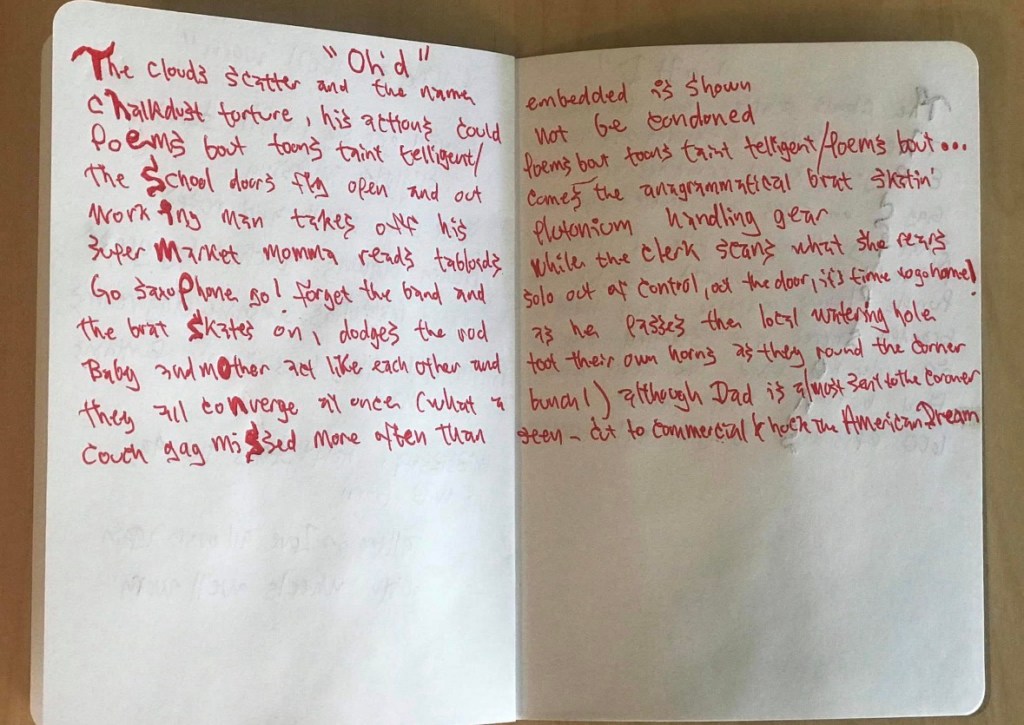 "Oh'd"
The Clouds scatter and the name embedded is shown
Chalkdust torture, his actions could not be condoned
Poems bout toons taint telligent/Poems bout toons taint telligent/Poems bout...
the School doors fly open and out comes the anagrammatical brat skatin'
Working man takes off his plutonium handling gear
Supermarket momma reads tabloids while the clerk scans what she rears
Go saxophone go! forget the band and solo out of control, out the door, it's time to go home!
the brat skates on, dodges the rod as he passes the local watering hole
Baby and mother act like each other and toot their own horns as they round the corner
they all converge at once (what a bunch!) although Dad is almost sent to the coroner
Couch gag missed more often than seen - cut to commercial & hock the American Dream